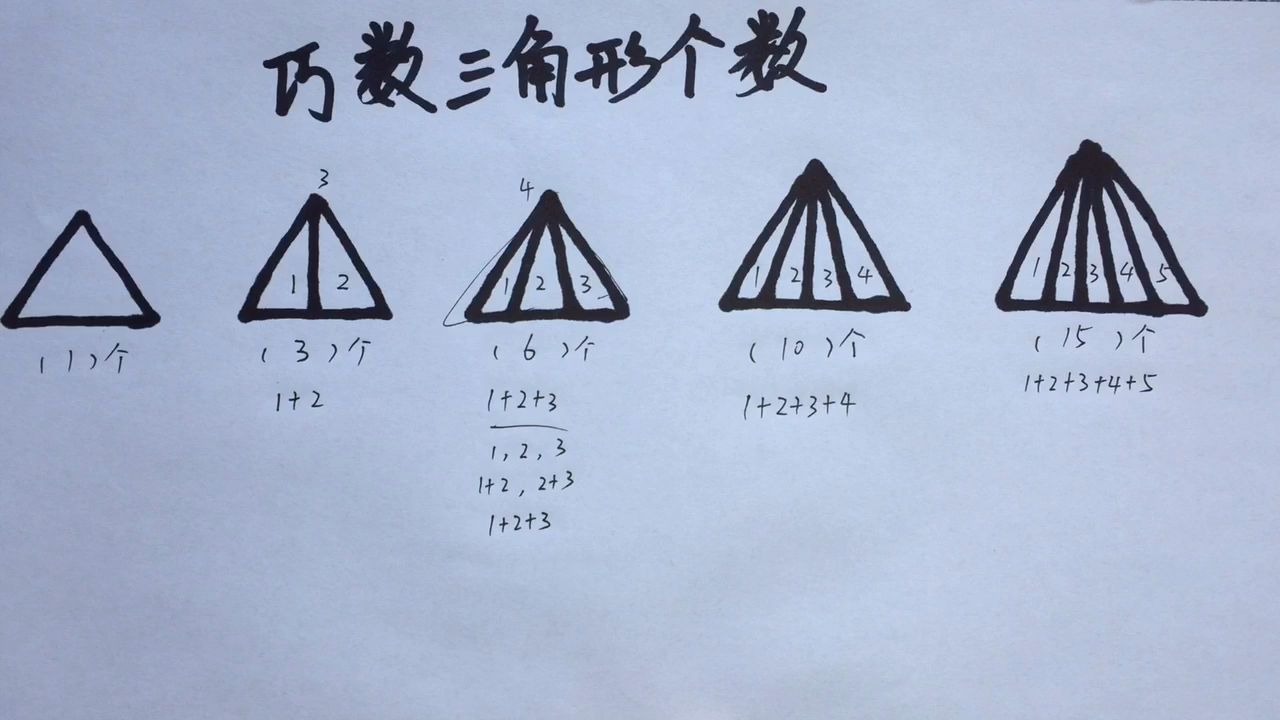 巧数三角形个数
3
4
1 2
1 2 3
1 2 3 4
1 2 3 4 5
(1)个
(3)个
(6)个
(10)个
(15)个
1+2
1+2+3
1+2+3+4
1+2+3+4+5
1,2,3
1+2,2+3
1+2+3